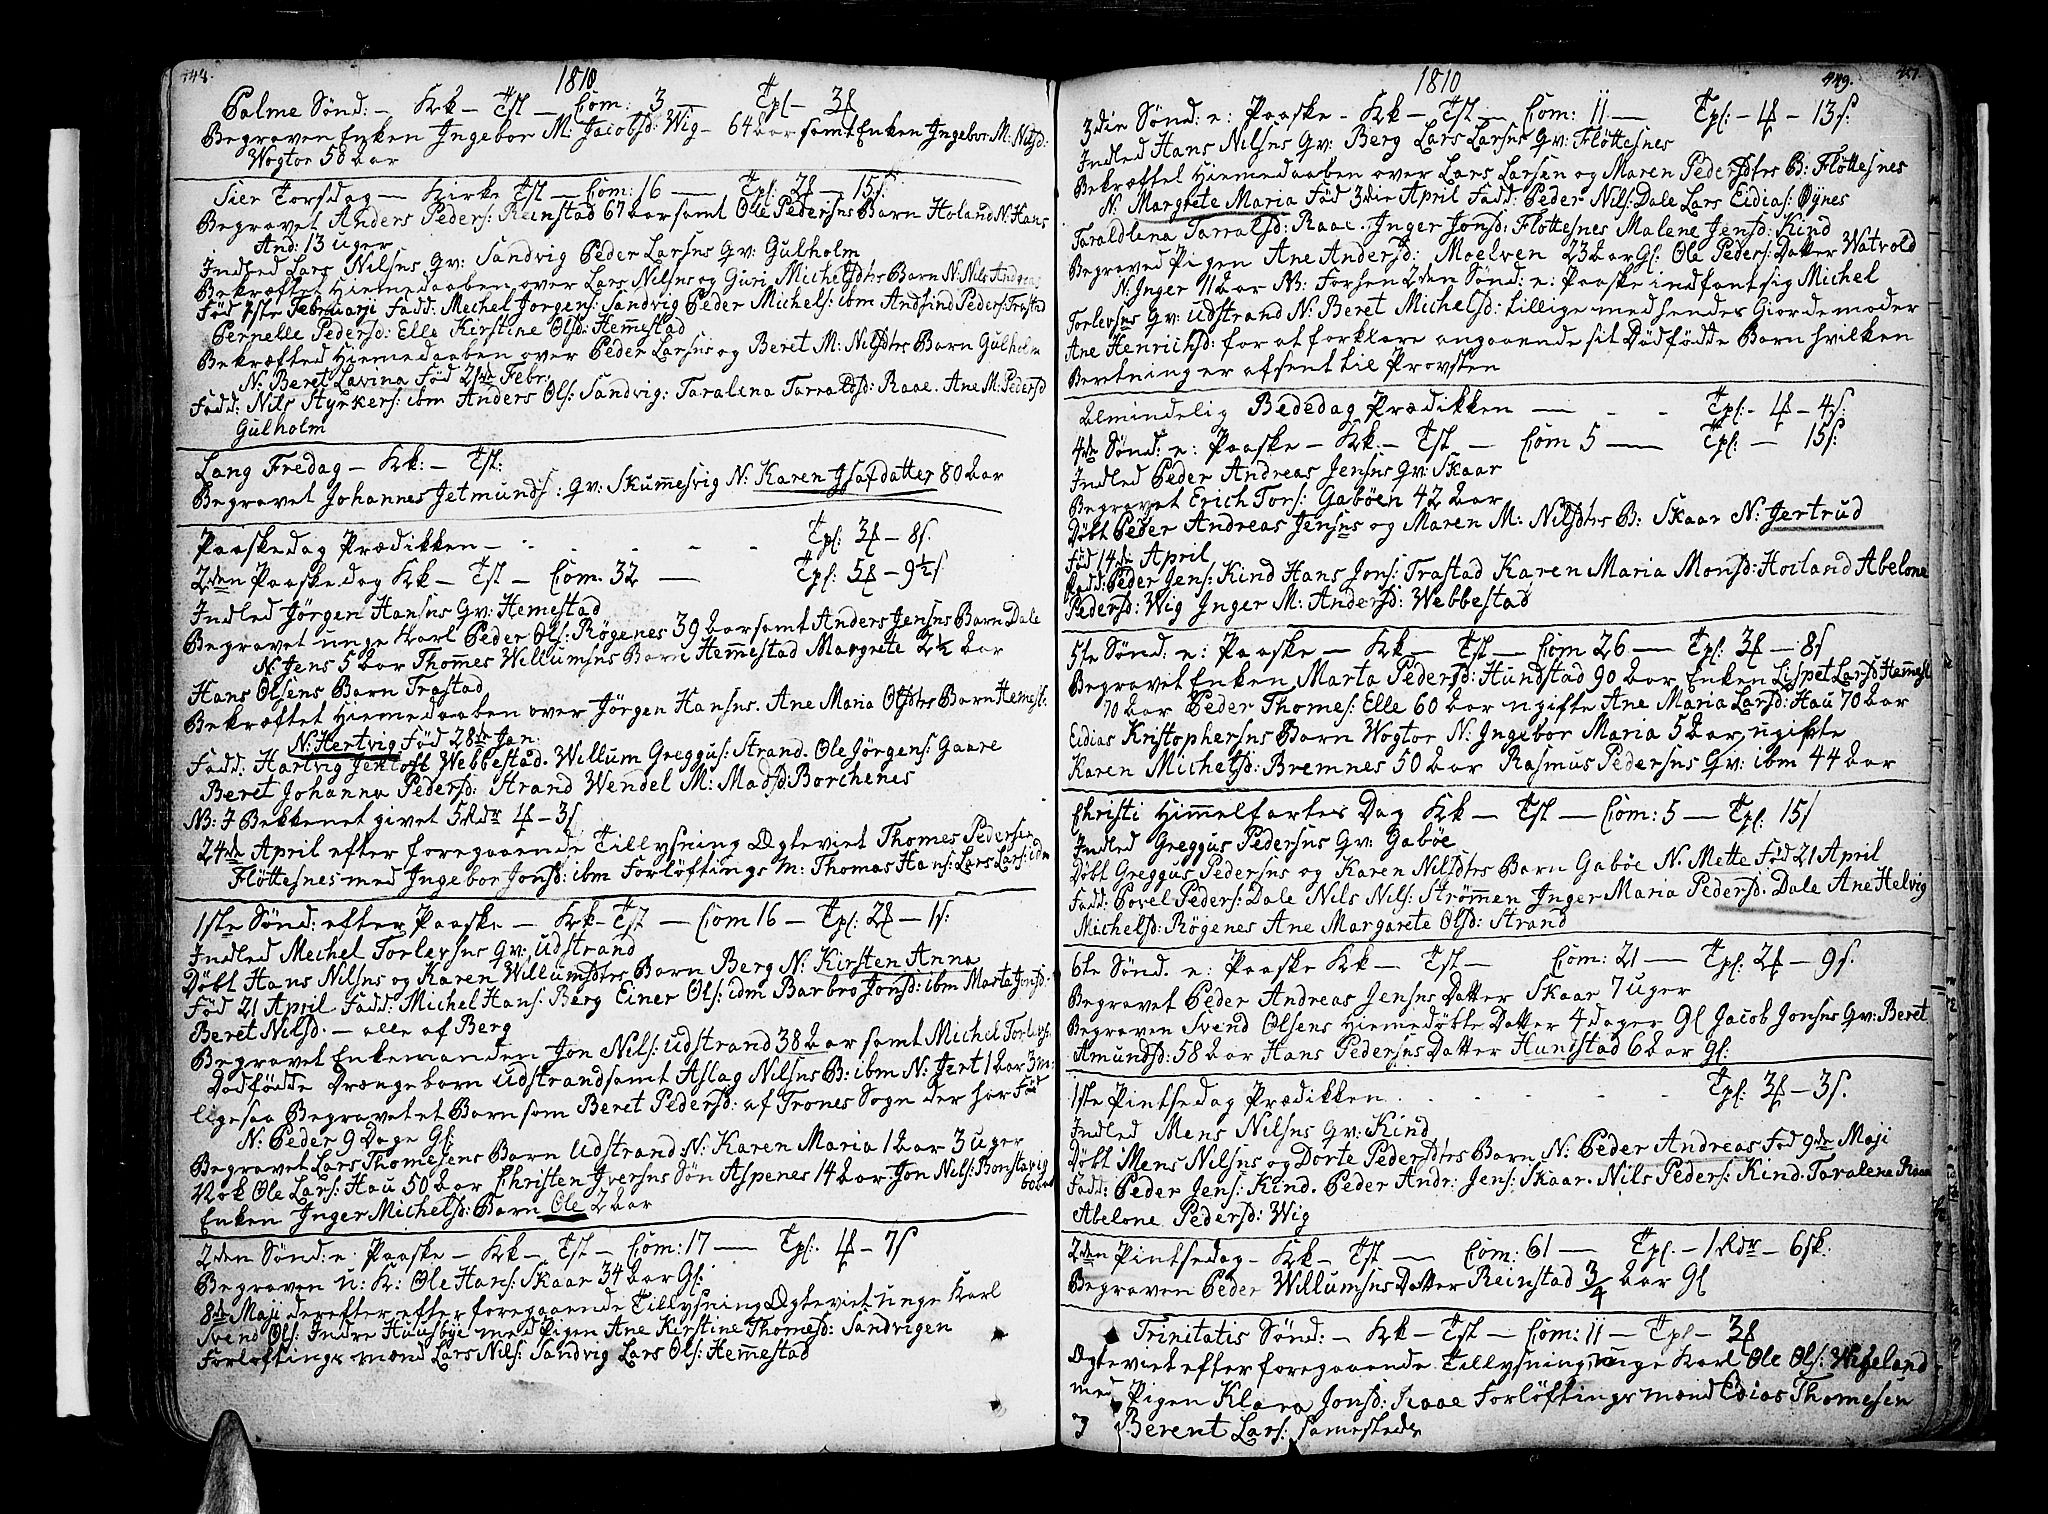 448.
1810
Palme Sønd: – Kk – Tst – Com: 3 – Tpl – 3
Begraven Enken Ingebor M: Jacobsd: Wig – 64 aar samt Enken Ingebor M: Nilsd:
Wogtor 58 aar
Sier Torsdag – Kirke Tst – Com: 16 – Tpl: 2 – 15 s
Begravet Anders Peders: Reinstad 67 aar samt Ole Pedersns Barn Holand N: Hans
And: 13 uger
Indled Lars Nilsns Qv: Sandvig Peder Larsns Qv: Gulholm
Bekræftet Hiemedaaben over Lars Nilsns og Guri Michelsdtrs Barn N: Nils Andreas
Fød 7ste Februarji Fadd: Mechel Jørgens: Sandvig Peder Michels: ibm Andfind Peders: Trastad
Pernelle Pedersd: Elle Kirstine Olsd: Hem̅estad
Bekræfted Hiemedaaben over Peder Larsns og Beret M: Nilsdtrs Barn Gulholm
N: Beret Lavina Fød 21de Febr:
Fadd: Nils Styrkers: ibm Anders Ols: Sandvig: Taralena Tarraldsd: Raae. Ane M: Pedersd
Gulholm
Lang Fredag – Kk: – Tst:
Begravet Johannes Jetmunds: Qv: Skum̅esvig N: Karen Isafdatter 80 aar
Paaskedag Prædikken – Tpl: 3 – 8 s.
2den Paaskedag Kk – Tst – Com. 32 – Tpl: 5 – 9½ s
Indled Jørgen Hansns Qv: Hemestad
Begravet unge Karl Peder Ols: Røgenes 39 aar samt Anders Jensns Barn Dale
N: Jens 5 aar Thom̅es Willumsns Barn Hem̅estad Margrete 2½ aar
Hans Olsens Barn Trastad
Bekræftet Hiemedaaben over Jørgen Hansns. Ane Maria Olsdtrs Barn Hemest:
N: Hertvig Fød 28de Jan:
Fadd: Hartvig Jentoft Webbestad. Willum Greggus: Strand. Ole Jørgens: Gaare
Beret Johanna Pedersd: Strand Wendel M: Madsd: Borchenes
NB: I Bekkenet givet 5 Rdr 4 – 3 s
24de April efter foregaaende Tillysning Ægteviet Thomes Pedersen
Fløttesnes med Ingebor Jonsd: ibm Forløftings M: Thomas Hans: Lars Lars: idm
1ste Sønd: efter Paaske – Kk – Tst – Com 16 – Tpl: 2 – 1 s:
Indled Mechel Torlevsns Qv: udstrand
Døbt Hans Nilsns og Karen Willumsdtrs Barn Berg N: Kirsten Anna
Fød 21 April Fadd: Michel Hans: Berg Einer Ols: idm Barbro Jonsd: ibm Marta Jonsd:
Beret Nilsd. – alle af Berg
Begravet Enkemanden Jon Nils: udstrand 38 aar samt Michel Torlevs:
Dødfødde Drængebarn udstrand samt Aslag Nilsns B: ibm N: Jert 1 aar 3 m:
ligesaa Begravet et Barn som Beret Pedersd: af Trones Sogn der har Fød
N: Peder 9 Dage Gl:
Begravet Lars Thomesens Barn Udstrand: N: Karen Maria 1 aar 3 uger
Nok Ole Lars: Hau 50 aar Christen Iversns Søn Aspenes 14 aar. Jon Nils: Bonstavig
60 aar
Enken Inger Michelsd: Barn Ole 2 aar
2den Sønd: e: Paaske – Kk – Tst – Com: 17 – Tpl: 4 – 7 s
Begraven u: K: Ole Hans: Skaar 34 aar Gl:
8de Maji derefter efter foregaaende Tillysning Ægteviet unge Karl
Svend Ols: Indre Huusbye med Pigen Ane Kirstine Thomesd: Sandvigen
Forløftings mænd Lars Nils: Sandvig Lars Ols: Hem̅estad
1810
449.
3die Sønd: e: Paaske – Kk – Tst – Com: 11 – Tpl: – 4 – 13 s:
Indled Hans Nilsns Qv: Berg Lars Larsns Qv: Fløttesnes
Bekræftet Hiemedaaben over Lars Larsen og Maren Pedersdtrs B: Fløttesnes
N: Margrete Maria Fød 3die April Fadd: Peder Nils: Dale Lars Eidias: Øynes
Taraldlena Tarralsd: Raae. Inger Jonsd: Fløttesnes Malene Jensd: Kind
Begraved Pigen Ane Andersd: Moelven 23 aar Gl: Ole Peders: Datter Watvold
N: Inger 11 aar NB: Forhen 2den Sønd: e: Paaske indfant sig Michel
Torlevsns Qv: udstrand N: Beret Michelsd: tillige med hendes Giordemoder
Ane Henrichsd: for at forklare angaaende sit Dødfødde Barn hvilken
Beretning er afsent til Provsten
Almindelig Bededag Prædikken – Tpl: – 4 – 4 s:
4de Sønd: e: Paaske – Kk. – Tst – Com 5 – Tpl: – 15 s:
Indled Peder Andreas Jensns Qv: Skaar
Begravet Erich Tors: Gabøen 42 aar
Døbt Peder Andreas Jensns og Maren M: Nilsdtrs B: Skaar N: Jertrud
Fød 14de April
Fadd: Peder Jens: Kind Hans Jons: Trastad Karen Maria Monsd: Hoiland Abelone
Pedersd: Wig Inger M: Andersd: Webbestad
5te Sønd: e: Paaske – Kk – Tst – Com 26 – Tpl: 3 – 8 s
Begravet Enken Marta Pedersd: Hundstad 90 aar Enken Lispet Larsd Hem̅est
70 aar Peder Thomes: Elle 60 aar ugifte Ane Maria Larsd: Hau 70 aar
Eidias Kristophersns Barn Wogtor N: Ingebor Maria 5 aar, ugifte
Karen Michelsd: Bremnes 50 aar Rasmus Pedersns Qv: ibm 44 aar
Christi Him̅elfartes Dag Kk – Tst – Com: 5 – Tpl: 15 s
Indled Greggus Pedersns Qv: Gabøe
Døbt Greggus Pedersns og Karen Nilsdtrs Barn Gabøe N: Mette Fød 21 April
Fadd: Povel Peders: Dale Nils Nils: Strøm̅en Inger Maria Pedersd: Dale Ane Helvig
Michelsd: Røgenes Ane Margarete Olsd: Strand
6te Sønd. e: Paaske Kk – Tst – Com: 21 – Tpl: 2 – 9 s.
Begravet Peder Andreas Jensns Datter Skaar 7 uger
Begraven Svend Olsens Hiemedøbte Datter 4 dager Gl Jacob Jonsns Qv: Beret
Amundsd: 58 aar Hans Pedersns Datter Hundstad 6 aar Gl:
1ste Pintsedag Prædikken – Tpl: 3 – 3 s.
Indled Mens Nilsns Qv: Kind
Døbt Mens Nilsns og Dorte Pedersdtrs Barn N: Peder Andreas Fød 9de Maji
Fadd: Peder Jens: Kind. Peder Andr: Jens: Skaar. Nils Peders: Kind. Taralena Raae
Abelone Pedersd: Wig
2den Pintsedag – Kk – Tst – Com: 61 – Tpl. – 1 Rdr – 6 sk:
Begraven Peder Willumsns Datter Reinstad 3/4 aar Gl
Trinitatis Sønd: – Kk – Tst – Com: 11 – Tpl – 3
Ægteviet efter foregaaende Tillysning unge Karl Ole Ols: Wigeland
med Pigen Klara Jonsd: Raae Forløftings mænd Edias Thomesen
Berent Lars: samesteds